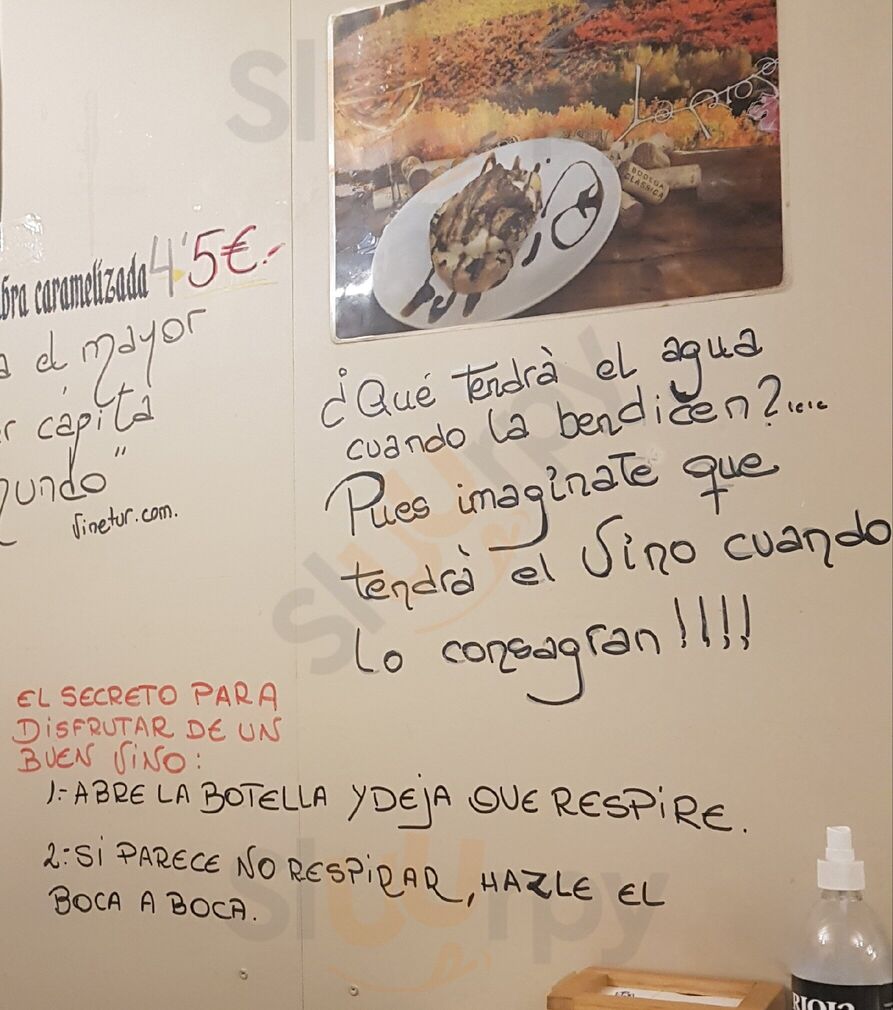 La Rioja
BODEGA
CLÁSSICA
bra caramelizada 4'5€.-
a el mayor
r cápità
mundo"
Vinetur.com.
¿Qué tendrà el agua
cuando la bendicen?....
Pues imagínate que
tendrà el Vino cuando
lo consagran!!!!
EL SECRETO PARA
DISFRUTAR DE UN
BUEN VINO:
1:- ABRE LA BOTELLA Y DEJA QUE RESPIRE.
2:- SI PARECE NO RESPIRAR, HAZLE EL
BOCA A BOCA.
RIOJA
Sluurpy
Sluurpy
Sluurpy